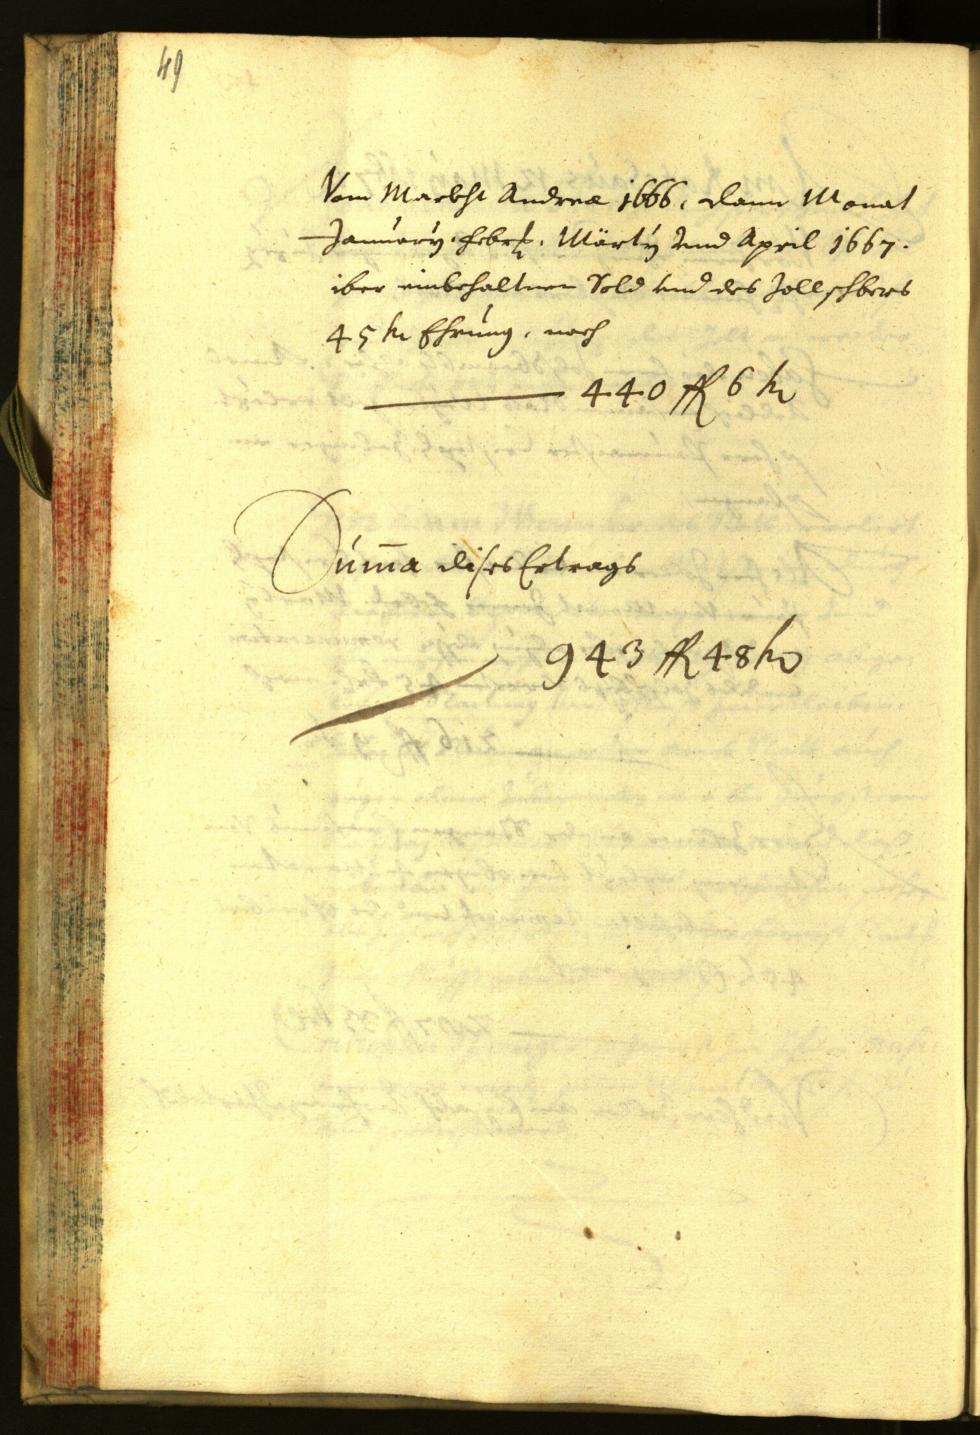 49
Vom Marckht Andreæ 1666, dann Monat
Januarÿ. Febr: Märtÿ vnd April 1667.
iber einbehaltnen Sold vnd des Zollschbers
45 kr Ehrung, noch
440 fl 6 kr
Suma dises Ertrags
943 fl 48 kr